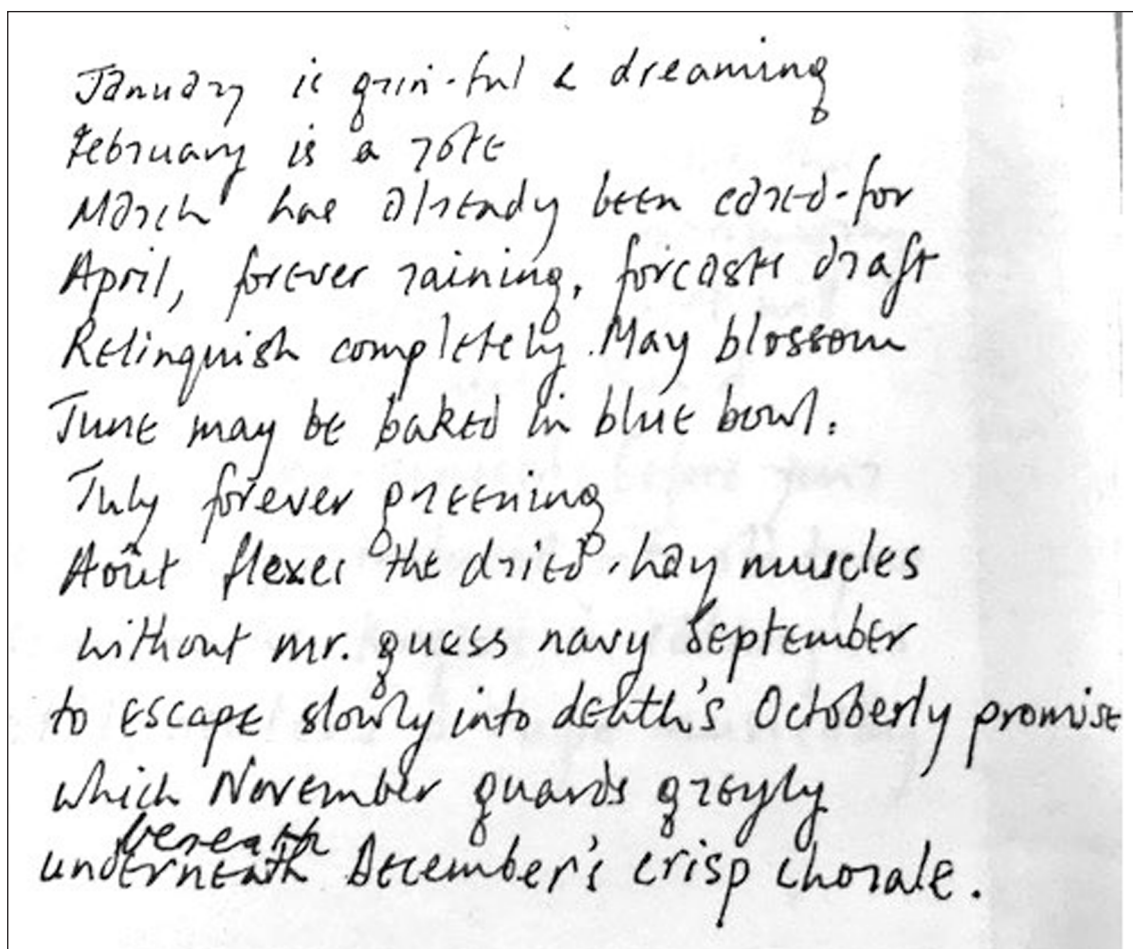 January is grin-ful & dreaming
February is a rote
March has already been cared-for
April, forever raining, forcasts draft
Relinquish completely. May blossom
June may be baked in blue bowl.
July forever greening
Août flexes the dried-hay muscles
without mr. guess navy September
to escape slowly into death's Octoberly promise
which November guards greyly
beneath
underneath December's crisp chorale.